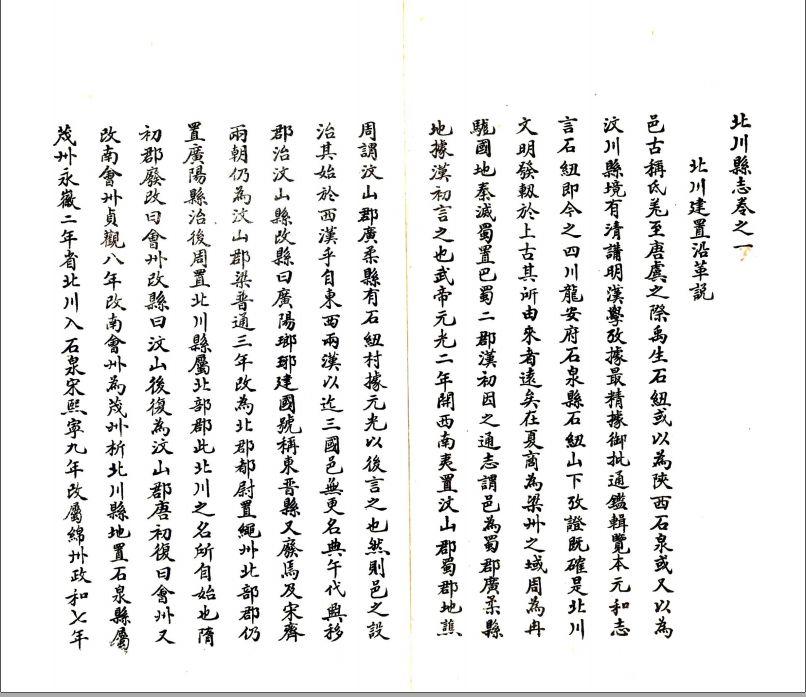 北川縣志卷之一
北川建置沿革説
邑古稱氐羌至唐虞之際禹生石紐或以為陝西石泉或又以為
汶川縣境有清講明漢學攷據最精據御批通鑑輯覽本元和志
言石紐即今之四川龍安府石泉縣石紐山下攷證既確是北川
文明發軔於上古其所由來者遠矣在夏商為梁州之域周為冉
駹國地秦滅蜀置巴蜀二郡漢初因之通志謂邑為蜀郡廣柔縣
地據漢初言之也武帝元光二年開西南夷置汶山郡蜀郡地譙
周謂汶山郡廣柔縣有石紐村據元光以後言之也然則邑之設
治其始於西漢乎自東西兩漢以迄三國邑無更名典午代興移
郡治汶山縣改縣曰廣陽瑯琊建國號稱東晉縣又廢焉及宋齊
兩朝仍為汶山郡梁普通三年改為北郡都尉置繩州北部郡仍
置廣陽縣治後周置北川縣屬北部郡此北川之名所自始也隋
初郡廢改曰會州改縣曰汶山後復為汶山郡唐初復曰會州又
改南會州貞觀八年改南會州為茂州析北川縣地置石泉縣屬
茂州永徽二年省北川入石泉宋熙寧九年改屬綿州政和七年